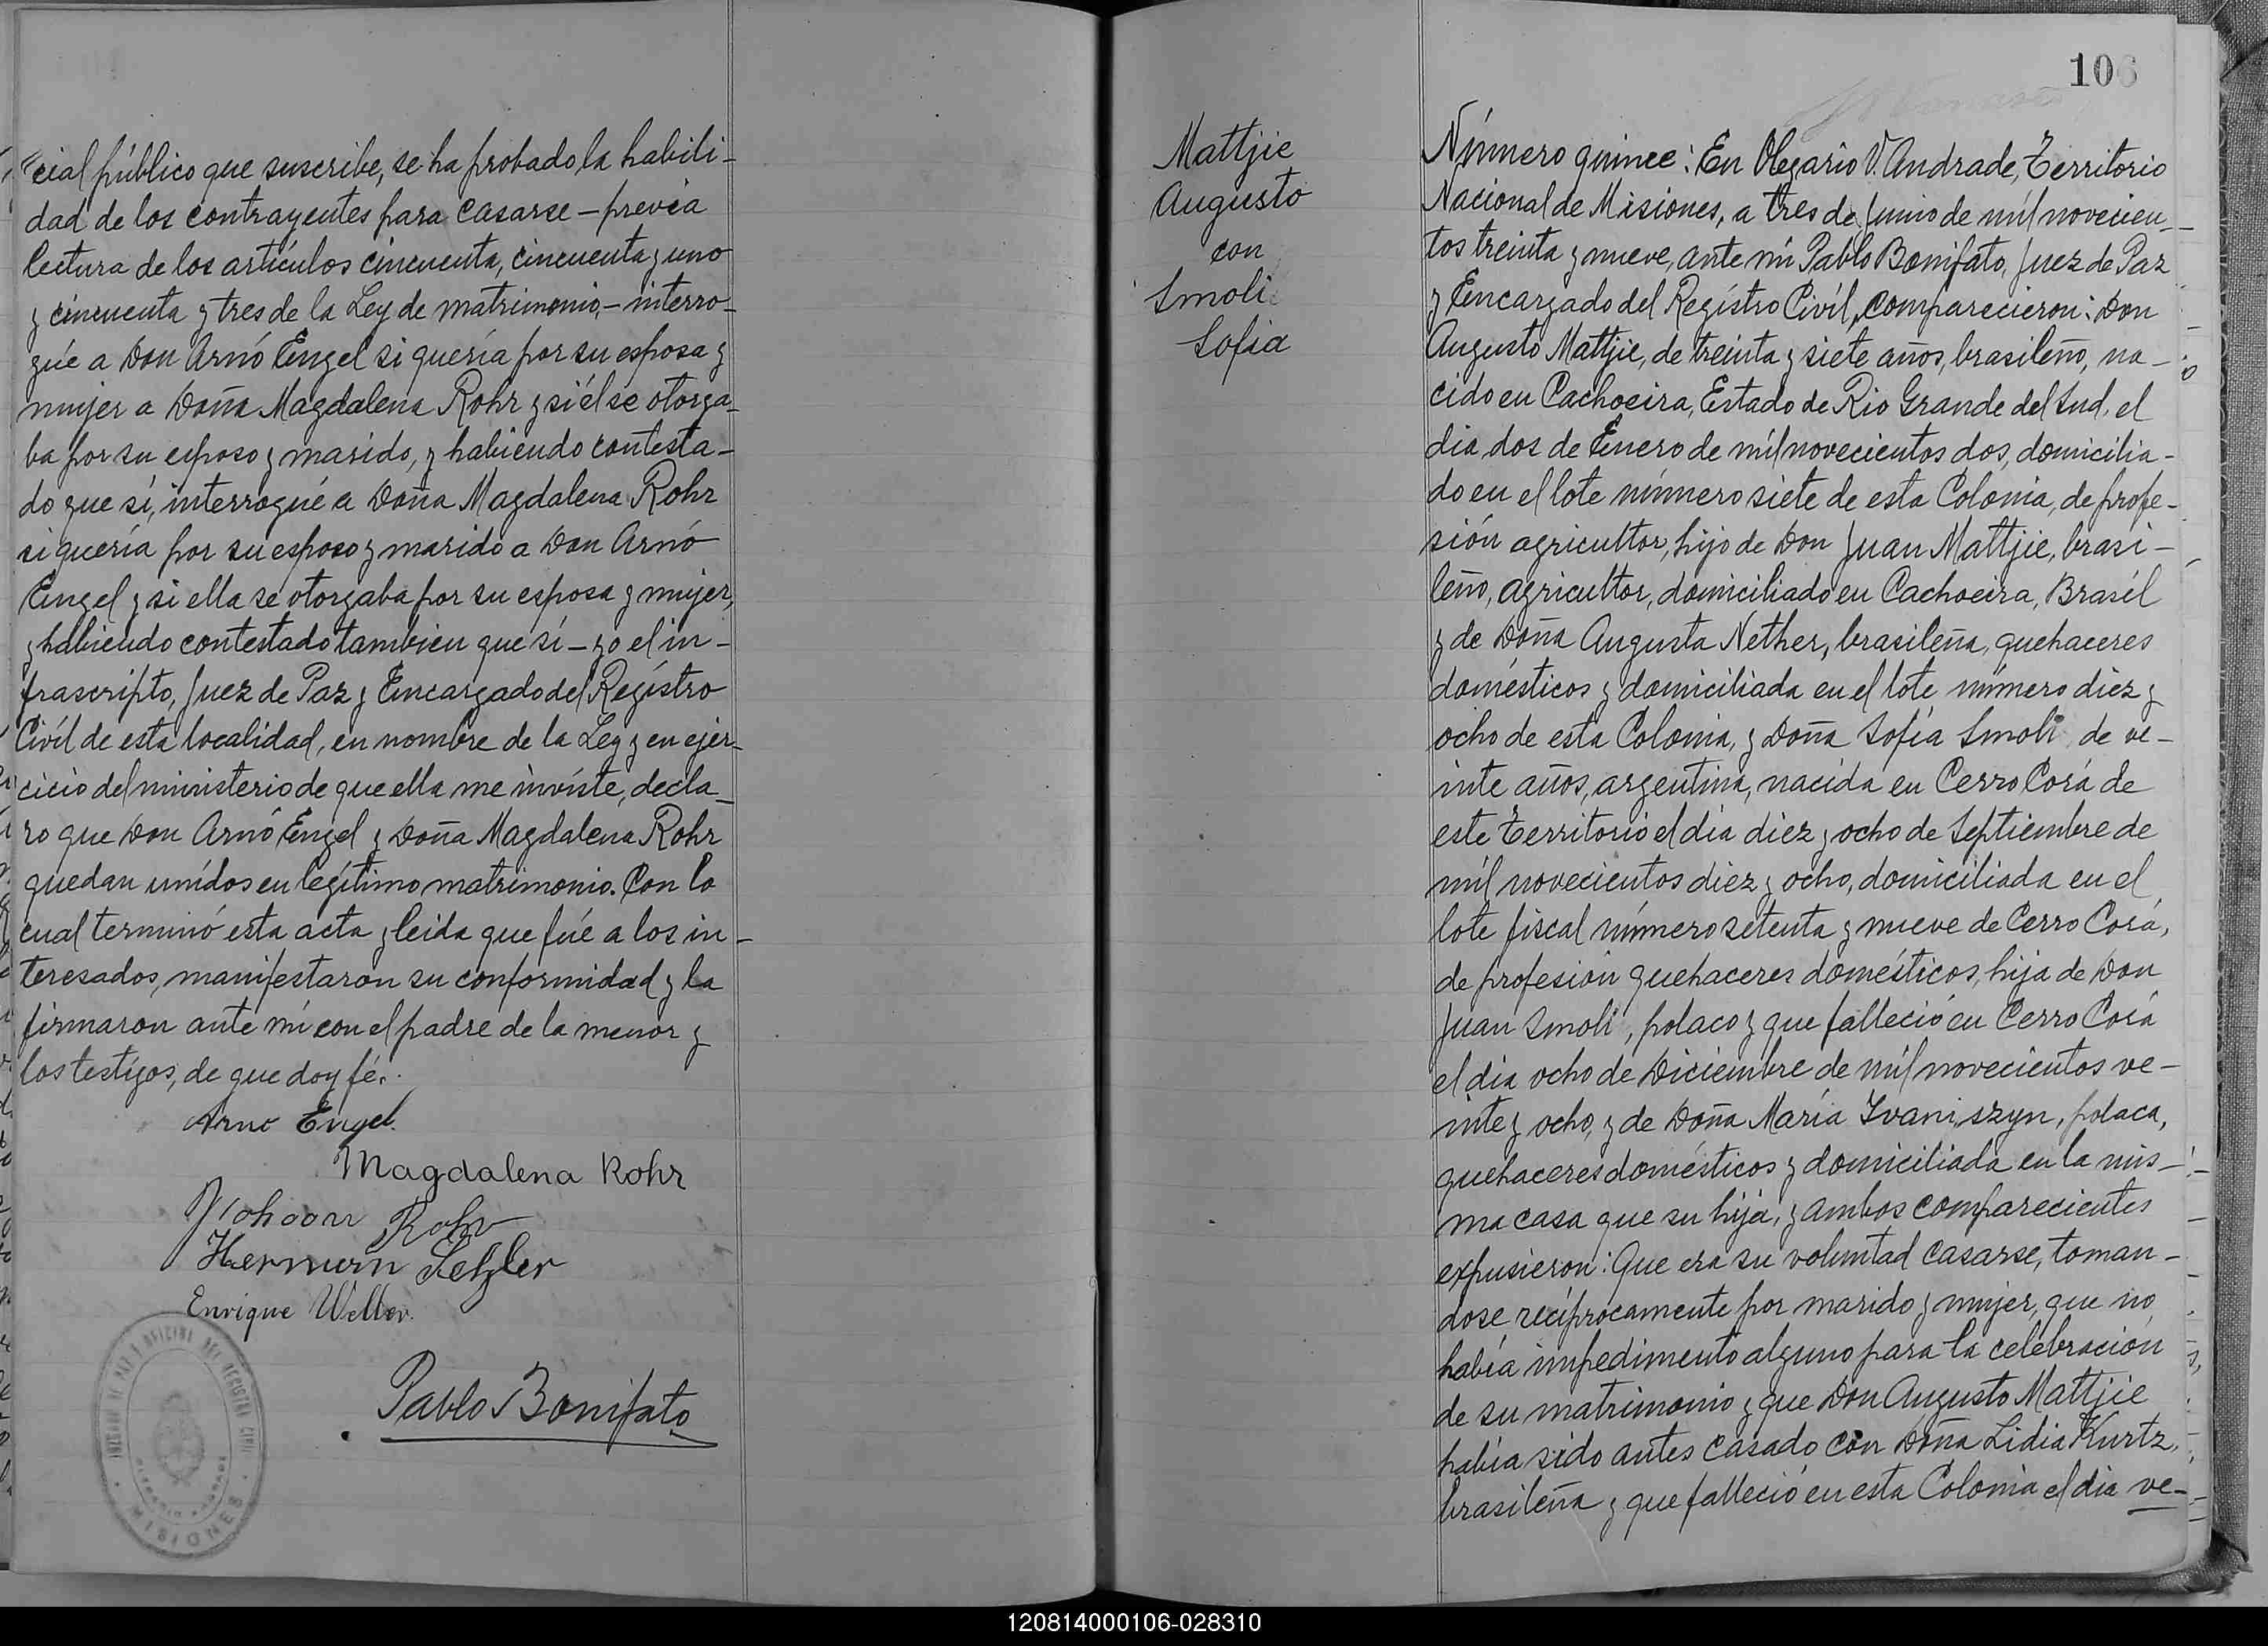 cial público que suscribe, se ha probado la habili-
dad de los contrayentes para casarse - previa
lectura de los artículos cincuenta, cincuenta y uno
y cincuenta y tres de la Ley de matrimonio, - interro-
gué a Don Arnó Engel si quería por su esposa y
mujer a Doña Magdalena Rohr y si él se otorga-
ba por su esposo y marido, y habiendo contesta-
do que sí, interrogué a Doña Magdalena Rohr
si quería por su esposo y marido a Don Arnó
Engel y si ella se otorgaba por su esposa y mujer,
y habiendo contestado tambien que sí - yo el in-
frascripto, Juez de Paz y Encargado del Regístro
Civíl de esta localidad, en nombre de la Ley y en ejer-
cicio del ministerio de que ella me invíste, decla-
ro que Don Arnó Engel y Doña Magdalena Rohr
quedan unídos en legítimo matrimonio. Con lo
cual terminó esta acta y leida que fué a los in-
teresados, manifestaron su conformidad y la
firmaron ante mí con el padre de la menor y
los testigos, de que doy fé.
Arno Engel.
Magdalena Rohr
Johann Rohr
Hermann
Enrique Weller.
Pablo Bonifato
MISIONES
106
Mattjie
Augusto
con
Smoli
Sofia
Número quince: En Olegario V. Andrade, Territorio
Nacional de Misiones, a tres de Junio de míl novecien-
tos treinta y nueve, ante mí Pablo Bonifato, Juez de Paz
y Encargado del Regístro Civíl, comparecieron: Don
Augusto Mattjie, de treinta y siete años, brasileño, na-
cido en Cachoeira, Estado de Rio Grande del Sud, el
dia dos de Enero de míl novecientos dos, domicilia-
do en el lote número siete de esta Colonia, de profe-
sión agricultor, hijo de Don Juan Mattjie, brasi-
leño, agricultor, domiciliado en Cachoeira, Brasíl
y de Doña Augusta Nether, brasileña, quehaceres
domésticos y domiciliada en el lote número diez y
ocho de esta Colonia, y Doña Sofía Smoli de ve-
inte años, argentina, nacida en Cerro Corá de
este Territorio el dia diez y ocho de Septiembre de
míl novecientos diez y ocho, domiciliada en el
lote fiscal número setenta y nueve de Cerro Corá,
de profesión quehaceres domésticos, hija de Don
Juan Smoli, polaco y que falleció en Cerro Corá
el dia ocho de Diciembre de míl novecientos ve-
inte y ocho, y de Doña María Ivaniszyn, polaca,
quehaceres domésticos y domiciliada en la mis-
ma casa que su hija, y ambos comparecientes
expusieron: Que era su voluntad casarse, toman-
dose recíprocamente por marido y mujer, que no
había impedimento alguno para la celebración
de su matrimonio y que Don Augusto Mattjie
había sido antes casado con Doña Lidia Kurtz,
brasileña y que falleció en esta Colonia el dia ve-
120814000106-028310